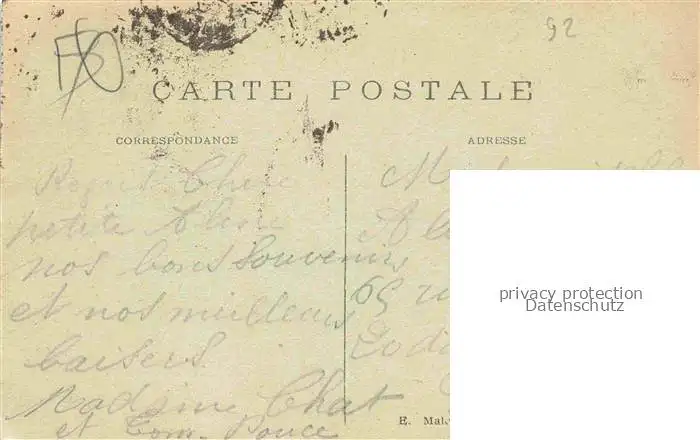 92
CARTE POSTALE
CORRESPONDANCE
ADRESSE
Reçoit Chère
petite
nos bons Souvenirs
et nos meilleurs
baisers.
Madame Chat
et Tom-Pouce
65 ru
privacy protection
Datenschutz
E. Mal